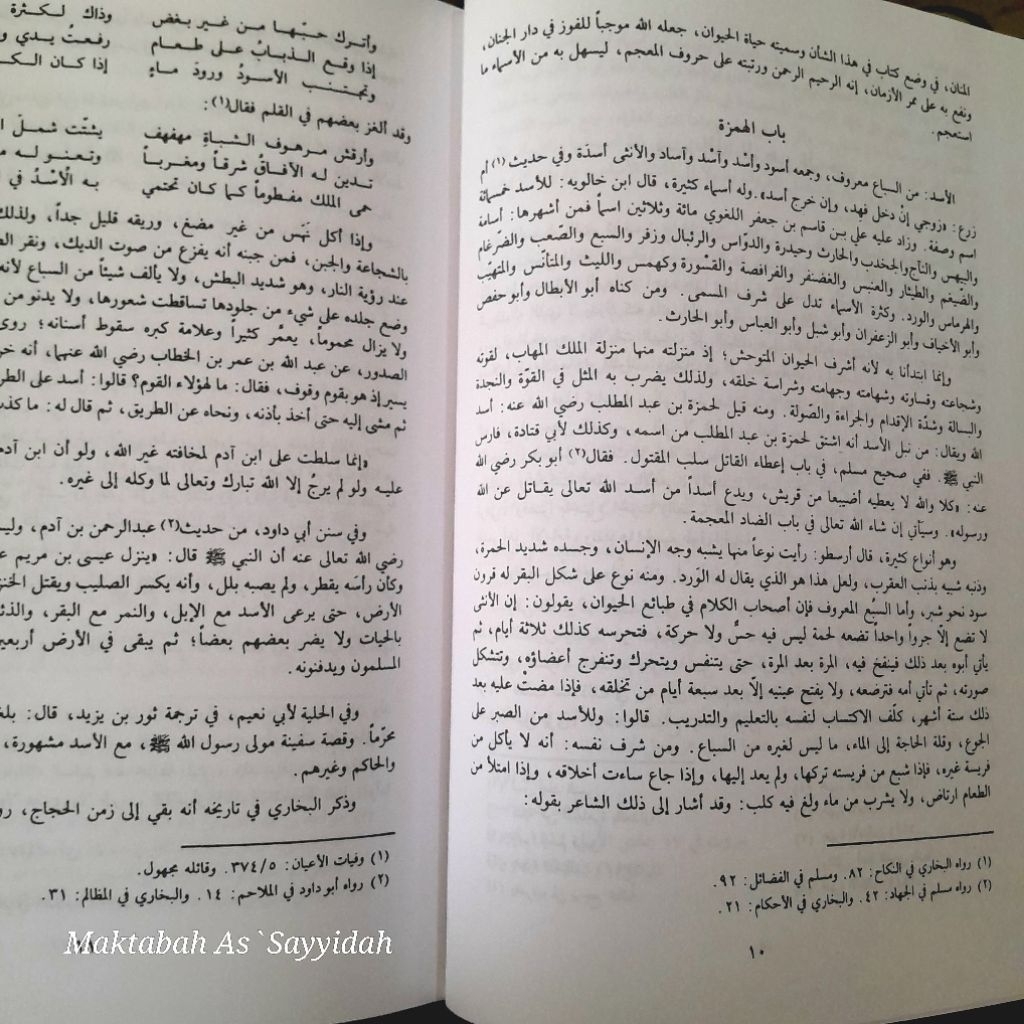 المنان، في وضع كتاب في هذا الشأن وسميته حياة الحيوان، جعله الله موجباً للفوز في دار الجنان،
ونفع به على ممر الأزمان، إنه الرحيم الرحمن ورتبته على حروف المعجم، ليسهل به من الأسماء ما
استعجم.
باب الهمزة
الأسد: من السباع معروف، وجمعه أسود وأُسْد وآسُد وآساد والأنثى أسدَة وفي حديث(١) أم
زرع: «زوجي إنْ دخل فهد، وإن خرج أسد». وله أسماء كثيرة، قال ابن خالويه: للأسد خمسمائة
اسم وصفة. وزاد عليه علي بن قاسم بن جعفر اللغوي مائة وثلاثين اسماً فمن أشهرها: أسامة
والبيهس والنآج والجخدب والحارث وحيدرة والدوّاس والرئبال وزفر والسبع والصّعب والضّرغام
والضيغم والطيثار والعنبس والغضنفر والفرافصة والقسْورة وكهمس والليث والمتأنّس والمتهيّب
والهرماس والورد. وكثرة الأسماء تدل على شرف المسمى. ومن كناه أبو الأبطال وأبو حفص
وأبو الأخياف وأبو الزعفران وأبو شبل وأبو العباس وأبو الحارث.
وإنما ابتدأنا به لأنه أشرف الحيوان المتوحش؛ إذ منزلته منها منزلة الملك المهاب، لقوته
وشجاعته وقساوته وشهامته وجهامته وشراسة خلقه، ولذلك يضرب به المثل في القوّة والنجدة
والبسالة وشدّة الإقدام والجراءة والصّولة. ومنه قيل لحمزة بن عبد المطلب رضي الله عنه: أسد
الله ويقال: من نبل الأسد أنه اشتق لحمزة بن عبد المطلب من اسمه، وكذلك لأبي قتادة، فارس
النبي ﷺ. ففي صحيح مسلم، في باب إعطاء القاتل سلب المقتول. فقال(٢) أبو بكر رضي الله
عنه: «كلا والله لا يعطيه أضيبعا من قريش، ويدع أسداً من أسد الله تعالى يقاتل عن الله
ورسوله». وسيأتي إن شاء الله تعالى في باب الضاد المعجمة.
وهو أنواع كثيرة، قال أرسطو: رأيت نوعاً منها يشبه وجه الإنسان، وجسده شديد الحمرة،
وذنبه شبيه بذنب العقرب، ولعل هذا هو الذي يقال له الوَرد. ومنه نوع على شكل البقر له قرون
سود نحو شبر، وأما السبُع المعروف فإن أصحاب الكلام في طبائع الحيوان، يقولون: إن الأنثى
لا تضع إلّا جروا واحداً تضعه لحمة ليس فيه حسٌّ ولا حركة، فتحرسه كذلك ثلاثة أيام، ثم
يأتي أبوه بعد ذلك فينفخ فيه، المرة بعد المرة، حتى يتنفس ويتحرك وتنفرج أعضاؤه، وتتشكل
صورته، ثم تأتي أمه فترضعه، ولا يفتح عينيه إلّا بعد سبعة أيام من تخلقه، فإذا مضتْ عليه بعد
ذلك ستة أشهر، كلّف الاكتساب لنفسه بالتعليم والتدريب. قالوا: وللأسد من الصبر على
الجوع، وقلة الحاجة إلى الماء، ما ليس لغيره من السباع. ومن شرف نفسه: أنه لا يأكل من
فريسة غيره، فإذا شبع من فريسته تركها، ولم يعد إليها، وإذا جاع ساءت أخلاقه، وإذا امتلأ من
الطعام ارتاض، ولا يشرب من ماء ولغ فيه كلب: وقد أشار إلى ذلك الشاعر بقوله:
(١) رواه البخاري في النكاح: ٨٢. ومسلم في الفضائل: ٩٢.
(٢) رواه مسلم في الجهاد: ٤٢. والبخاري في الأحكام: ٢١.
١٠
وأترك حبّها من غير بغض وذاك لكثرة
إذا وقع الذبابُ على طعام رفعتُ يدي
وتجتنب الأسودُ ورودَ ماءٍ إذا كان
وقد ألغز بعضهم في القلم فقال(١):
وأرقش مرهوف الشباةِ مهفهف يشتّت شملَ
تدين له الآفاقُ شرقاً ومغرباً وتعنو له
حمى الملك مفطوماً كما كان تحتمي به الْأسْدُ في
وإذا أكل نَهَس من غير مضغ، وريقه قليل جداً، ولذلك
بالشجاعة والجبن، فمن جبنه أنه يفزع من صوت الديك، ونقر
عند رؤية النار، وهو شديد البطش، ولا يألف شيئاً من السباع لأنه
وضع جلده على شيء من جلودها تساقطت شعورها، ولا يدنو من
ولا يزال محموماً، يعمَّر كثيراً وعلامة كبره سقوط أسنانه؛ روى
الصدور، عن عبد الله بن عمر بن الخطاب رضي الله عنهما، أنه
يسير إذ هو بقوم وقوف، فقال: ما لهؤلاء القوم؟ قالوا: أسد على
ثم مشى إليه حتى أخذ بأذنه، ونحاه عن الطريق، ثم قال له: ما
«إنما سلطت على ابن آدم لمخافته غير الله، ولو أن ابن آدم
عليه ولو لم يرجُ إلا الله تبارك وتعالى لما وكله إلى غيره.
وفي سنن أبي داود، من حديث(٢) عبدالرحمن بن آدم،
رضي الله تعالى عنه أن النبي ﷺ قال: «ينزل عيسى بن مريم
وكأن رأسَه يقطر، ولم يصبه بلل، وأنه يكسر الصليب ويقتل
الأرض، حتى يرعى الأسد مع الإبل، والنمر مع البقر،
بالحيات ولا يضر بعضهم بعضاً؛ ثم يبقى في الأرض
المسلمون ويدفنونه.
وفي الحلية لأبي نعيم، في ترجمة ثور بن يزيد، قال:
محرّماً. وقصة سفينة مولى رسول الله ﷺ، مع الأسد مشهورة،
والحاكم وغيرهم.
وذكر البخاري في تاريخه أنه بقي إلى زمن الحجاج،
(١) وفيات الأعيان: ٣٧٤/٥. وقائله مجهول.
(٢) رواه أبو داود في الملاحم: ١٤. والبخاري في المظالم: ٣١.
Maktabah As`Sayyidah